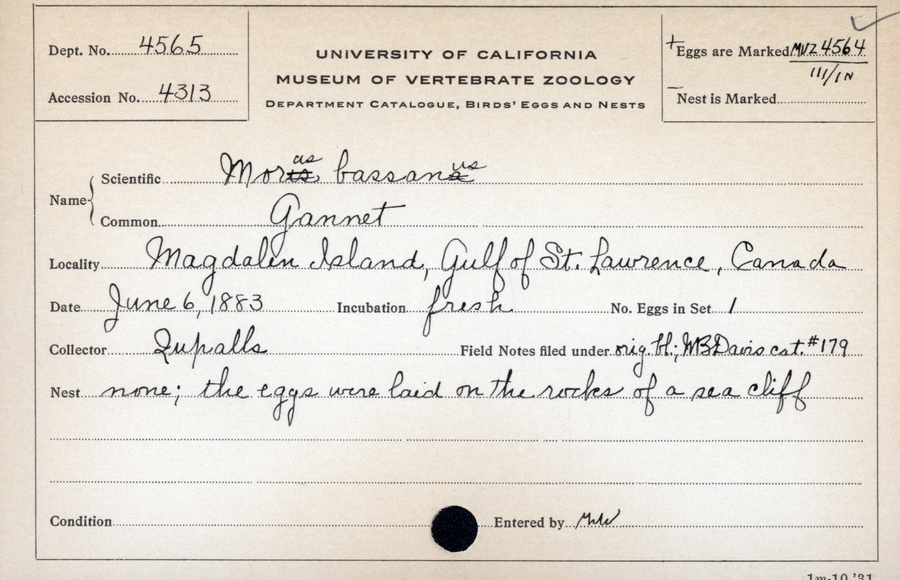 Dept. No. 4565
Accession No. 4313
UNIVERSITY OF CALIFORNIA
MUSEUM OF VERTEBRATE ZOOLOGY
DEPARTMENT CATALOGUE, BIRDS' EGGS AND NESTS
+ Eggs are Marked MVZ 4564
III/1N
— Nest is Marked
as us
Name Scientific Moris bassana
Common Gannet
Locality Magdalen Island, Gulf of St. Lawrence, Canada
Date June 6, 1883 Incubation fresh No. Eggs in Set 1
Collector Field Notes filed under orig. bl; WBDavis cat. #179
Nest none; the eggs were laid on the rocks of a sea cliff
Condition Entered by
1m-10 '31